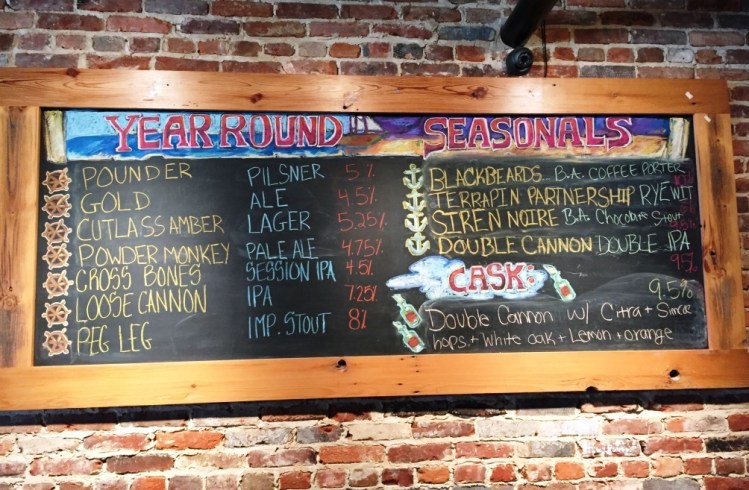 YEAR ROUND
POUNDER PILSNER 5%
GOLD ALE 4.5%
CUTLASS AMBER LAGER 5.25%
POWDER MONKEY PALE ALE 4.75%
CROSS BONES SESSION IPA 4.5%
LOOSE CANNON IPA 7.25%
PEG LEG IMP. STOUT 8%
SEASONALS
BLACKBEARDS B.A. COFFEE PORTER
TERRAPIN PARTNERSHIP RYEWIT
SIREN NOIRE B.A. Chocolate Stout
DOUBLE CANNON DOUBLE IPA
CASK: 9.5%
Double Cannon w/ Citra + Simcoe
hops + White oak + Lemon + orange